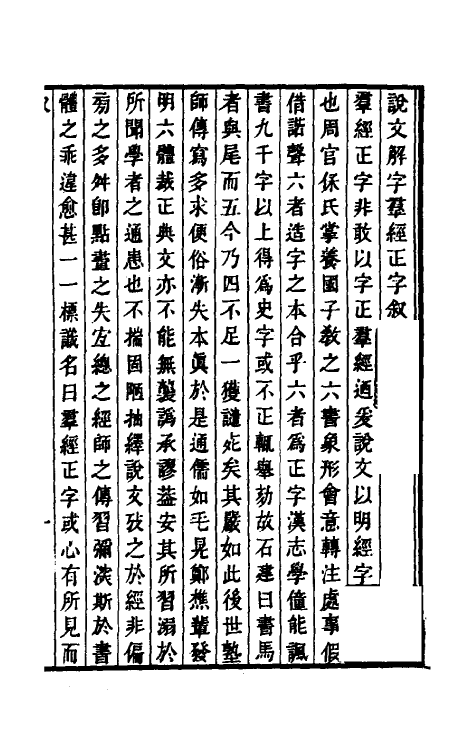 說文解字羣經正字叙
羣經正字非敢以字正羣經迺爰說文以明經字
也周官保氏掌養國子敎之六書象形會意轉注處事假
借諧聲六者造字之本合乎六者爲正字漢志學僮能諷
書九千字以上得爲史字或不正輒舉劾故石建曰書馬
者與尾而五今乃四不足一獲譴死矣其嚴如此後世塾
師傳寫多求便俗漸失本眞於是通儒如毛晃鄭樵輩發
明六體裁正典文亦不能無襲譌承謬葢安其所習溺於
所聞學者之通患也不揣固陋抽繹說文攷之於經非偏
㫄之多舛卽點畫之失宜總之經師之傳習彌淡斯於書
體之乖違愈甚一一標識名曰羣經正字或心有所見而
叙
一